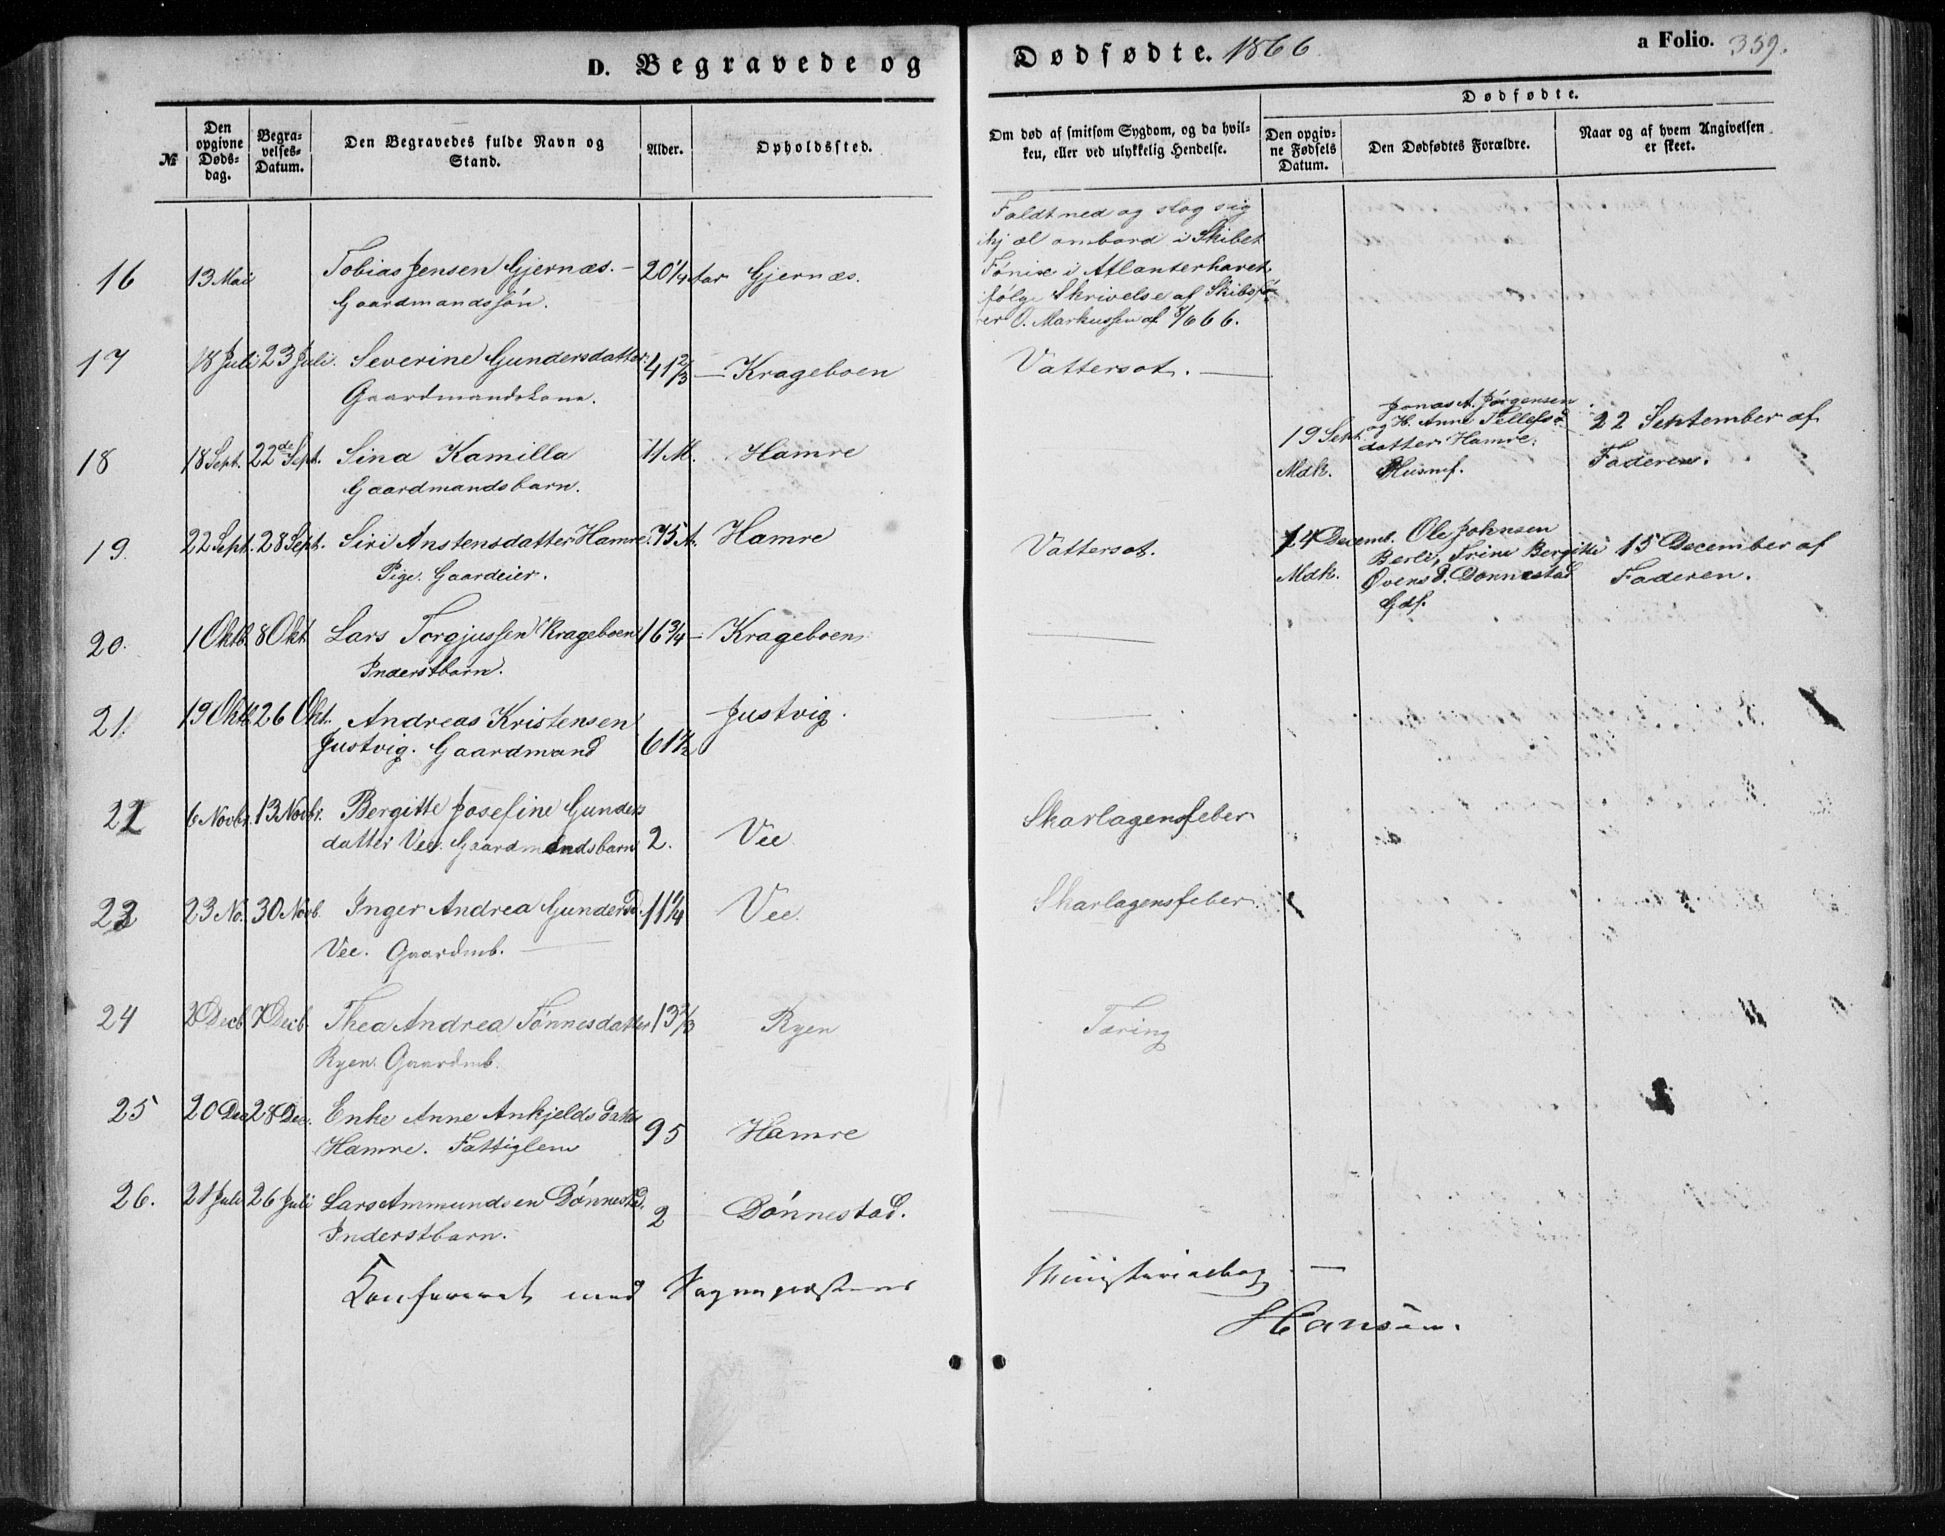 D. Begravede og Dødfødte. 1866
a Folio. 359.
№
Den opgivne Døds-dag.
Begra-velses-Datum.
Den Begravedes fulde Navn og Stand.
Alder.
Opholdssted.
Om død af smitsom Sygdom, og da hvil-ken, eller ved ulykkelig Hendelse.
Dødfødte.
Den opgiv-ne Fødsels Datum.
Den Dødfødtes Forældre.
Naar og af hvem Angivelsen er skeet.
16 13 Mai Tobias Jensen Gjernæs. – 20 1/4 Aar Gjernæs.
Gaardmandssøn.
Faldt ned og slog sig
ihjæl ombord i Skibet
Fønix i Atlanterhavet,
følge Skrivelse af Skibsfø-
rer O. Markussen af 8/6 66.
17 18 Juli 23 Juli. Severine Gundersdatter 41 2/3 — Krageboen Vattersot. —
Gaardmandskone.
18 18 Sept. 22de Sept. Sina Kamilla 11 M. Hamre
Gaardmandsbarn.
19 Sept.
Mdk.
Jonas A. Jørgensen
og H. Anne Tellefs-
datter Hamre.
Husmf.
22 September af
Faderen.
19. 22 Sept. 28 Sept. Siri Anstensdatter Hamre. 75 A. Hamre Vattersot.
Pige. Gaardeier.
14 Decemb.
Mdk.
Ole Johnsen
Berli, Trine Bergitte
Øvensd. Dønnestad
Gdf.
15 December af
Faderen.
20. 1 Oktb. 8 Okt Lars Torgjussen Krageboen 16 3/4 — Krageboen —
Inderstbarn.
21. 19 Oktb. 26 Okt. Andreas Kristensen Justvig. —
Justvig. Gaardmand 61 1/2
22 6 Novbr. 13 Novbr. Bergitte Josefine Gunders Skarlagensfeber
datter Vee. Gaardmandsbarn 2. Vee
23 23 No. 30 Novb. Inger Andrea Gundersd. 11 1/4 Vee. Skarlagensfeber
Vee. Gaardmb. —
24 2 Decb. 7 Decb. Thea Andrea Tønnesdatter 13 2/3 Ryen Tæring
Ryen. Gaardmb.
25 20 Dec 28 Dec. Enke Anne Ankjeldsdatter
Hamre. Fattiglem 95 Hamre
26. 21 Juli 26 Juli Lars Ammundsen Dønnestad. 2 Dønnestad.
Inderstbarn.
Konfereret med Sognepræstens Ministerialbog. —
Hansen.